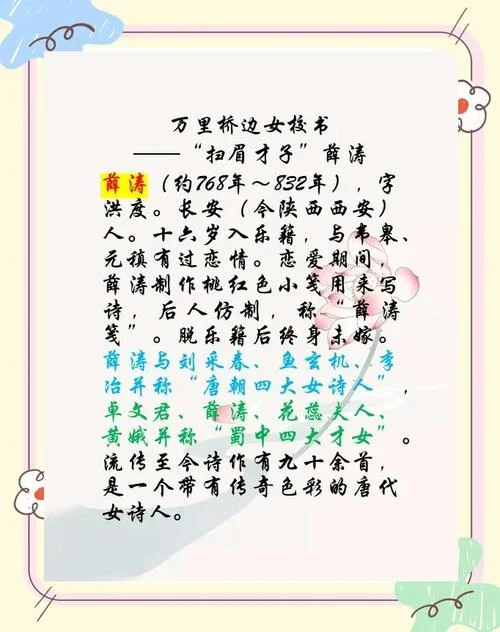 万里桥边女校书
——“扫眉才子”薛涛
薛涛（约768年～832年），字
洪度。长安（今陕西西安）
人。十六岁入乐籍，与韦皋、
元稹有过恋情。恋爱期间，
薛涛制作桃红色小笺用来写
诗，后人仿制，称“薛涛
笺”。脱乐籍后终身未嫁。
薛涛与刘采春、鱼玄机、李
冶并称“唐朝四大女诗人”，
卓文君、薛涛、花蕊夫人、
黄娥并称“蜀中四大才女”。
流传至今诗作有九十余首，
是一个带有传奇色彩的唐代
女诗人。